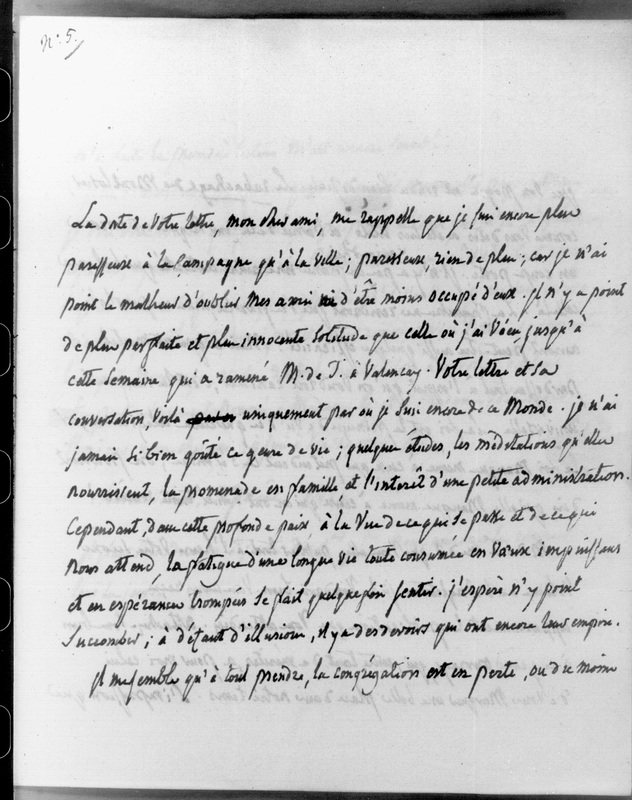 N.° 5.
La date de votre lettre, mon cher ami, me rappelle que je suis encore plus
paresseuse à la Campagne qu'à la ville ; paresseuse, rien de plus ; car je n'ai
point le malheur d'oublier mes amis ni d'être moins occupé d'eux. Il n'y a point
de plus parfaite et plus innocente solitude que celle où j'ai vécu jusqu'à
cette semaine qui a ramené M. de T. à Valençay. Votre lettre et sa
conversation, voilà uniquement par où je suis encore de ce Monde. je n'ai
jamais si bien goûté ce genre de vie ; quelques études, les méditations qu'elles
nourrissent, la promenade en famille et l'interêt d'une petite administration.
Cependant, dans cette profonde paix, à la vue de ce qui se passe et de ce qui
nous attend, la fatigue d'une longue vie toute consumée en vœux impuissans
et en espérances trompées se fait quelquefois sentir. j'espère n'y point
succomber ; à défaut d'illusions, il y a des devoirs qui ont encore leur empire.
Il me semble qu'à tout prendre, la congrégation est en perte, ou du moins